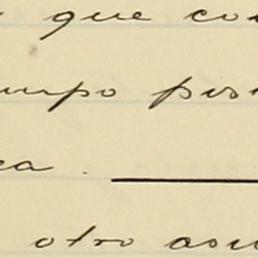 que co
mpo pos
ca.
otro asu